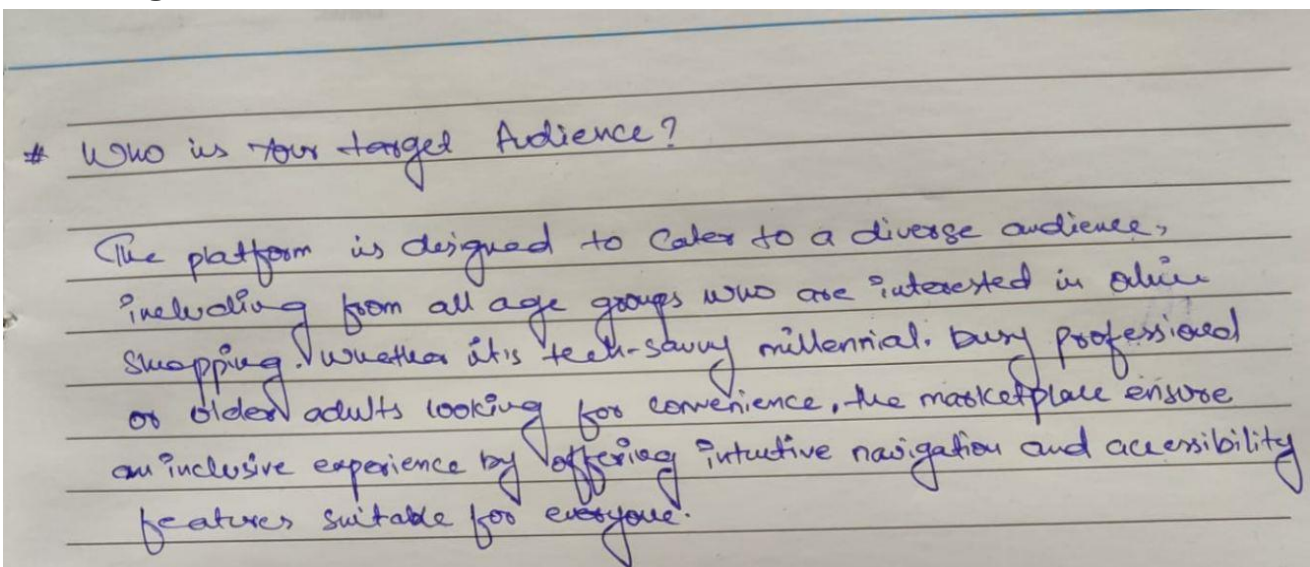 # Who is Your target Audience?
The platform is designed to Cater to a diverse audience,
including from all age groups who are interested in online
shopping. Whether it's tech-savvy millennial. busy professional
or older adults looking for convenience, the marketplace ensure
an inclusive experience by offering intutive navigation and accessibility
features suitable for everyone.